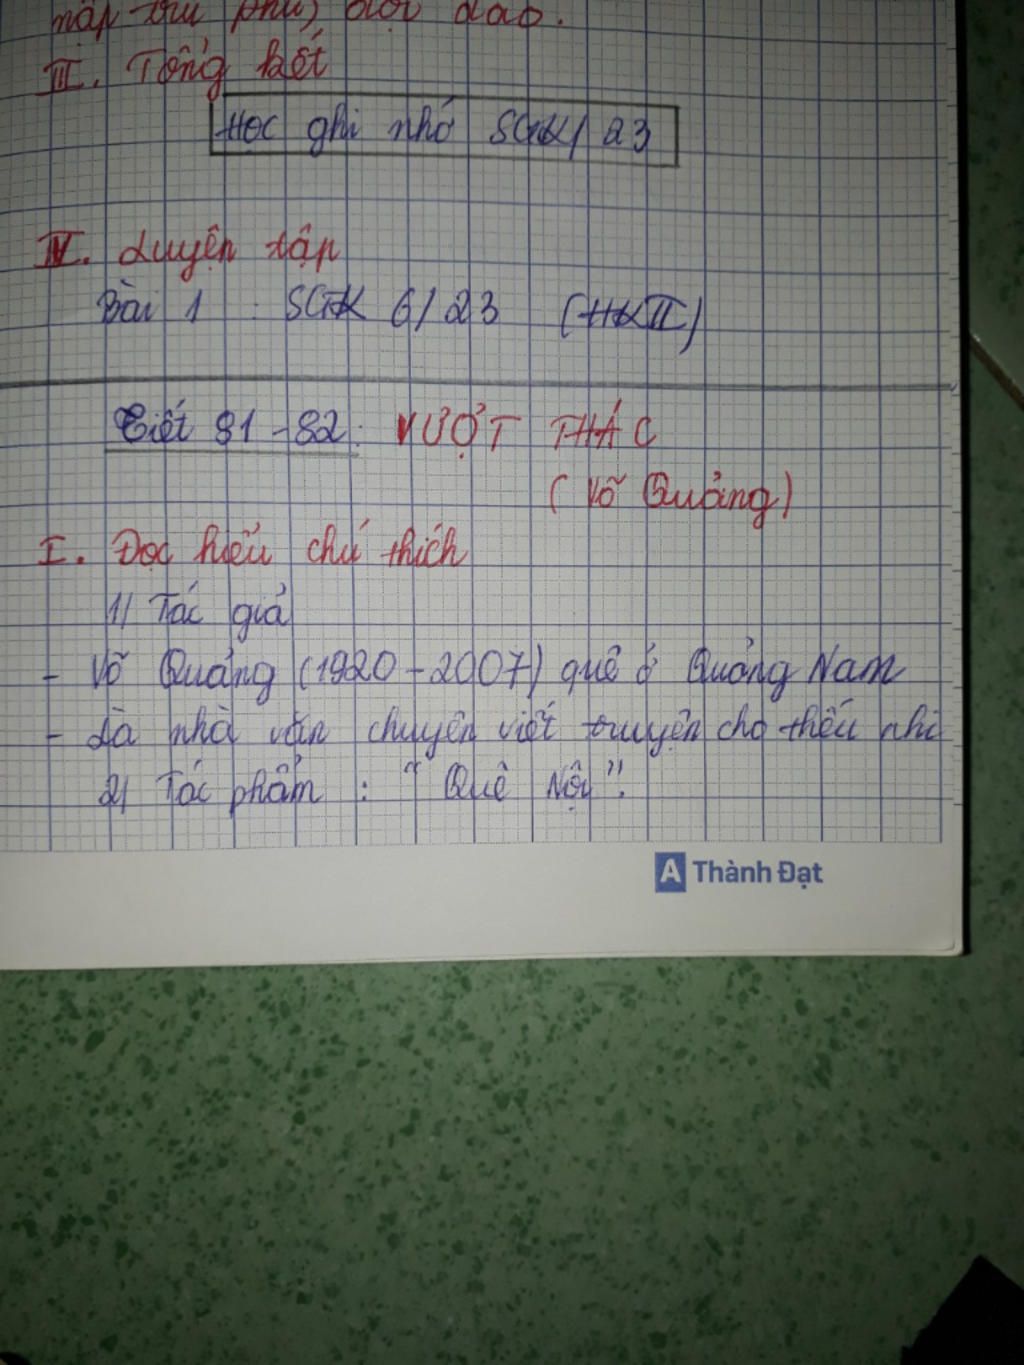 nập trù phú, dồi dào.
III. Tổng kết
Học ghi nhớ SGK/ 23
IV. Luyện tập
Bài 1 : SGK 6/ 23 (HKII)
Tiết 81 - 82: VƯỢT THÁC
( Võ Quảng)
I. Đọc hiểu chú thích
1/ Tác giả
- Võ Quảng (1920 - 2007) quê ở Quảng Nam
- Là nhà văn chuyên viết truyện cho thiếu nhi
2/ Tác phẩm : " Quê Nội".
A Thành Đạt